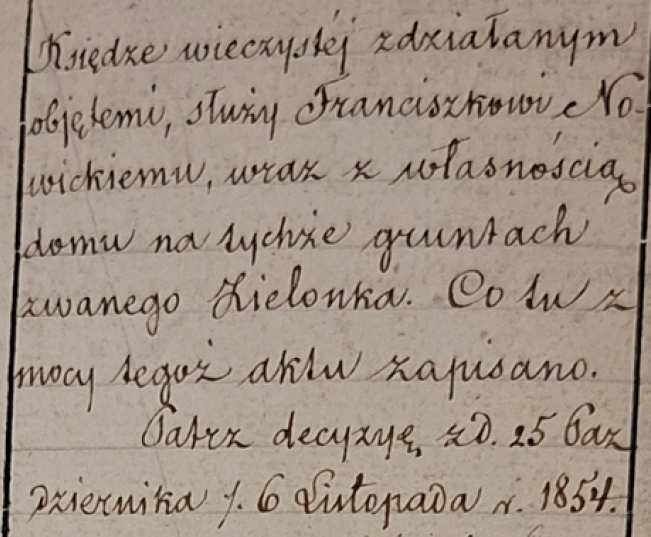 Księdze wieczystéj zdziałanym
objętemi, służy Franciszkowi No-
wickiemu, wraz z własnością
domu na tychże gruntach
zwanego Zielonka. Co tu z
mocy tegoż aktu zapisano.
Patrz decyzyę z d. 25 Paz
dziernika /. 6 Listopada r. 1854.